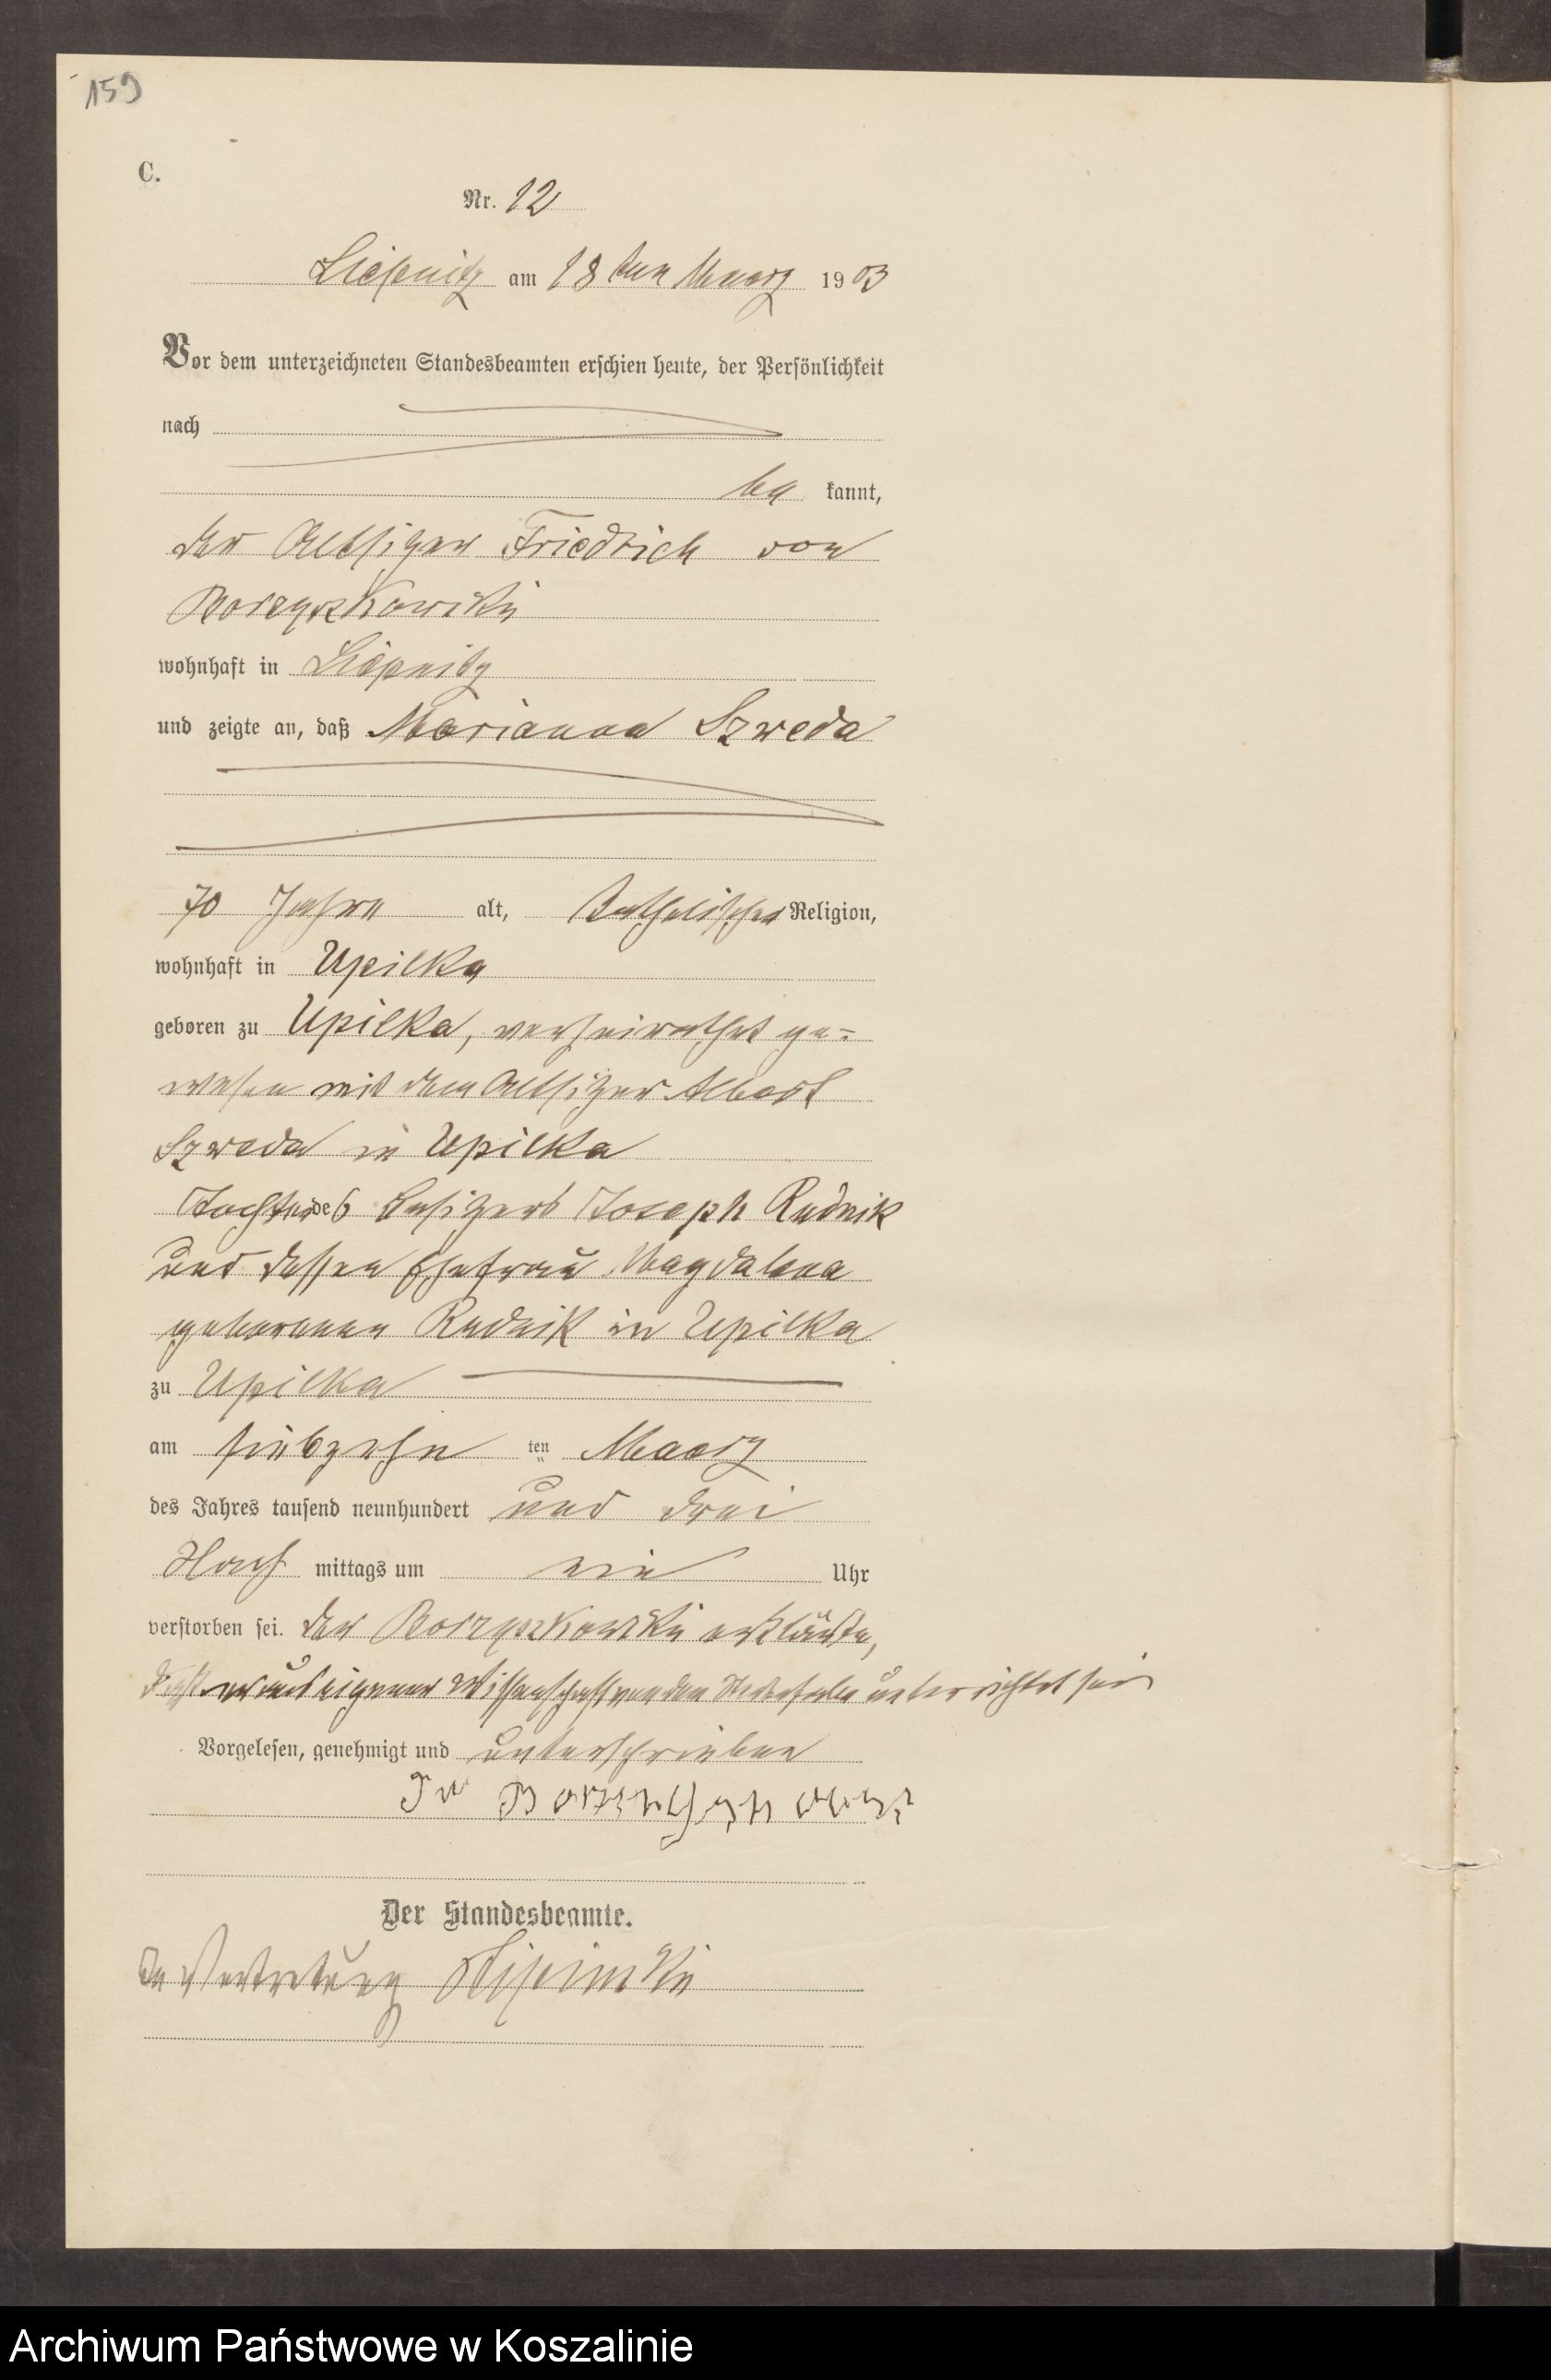 159
C.
Nr. 12
Liepnitz am 18 ten Maerz 1903
Vor dem unterzeichneten Standesbeamten erschien heute, der Persönlichkeit
nach
be kannt,
der Altsitzer Friedrich von
Borzyszkowski
wohnhaft in Liepnitz
und zeigte an, daß Marianna Szweda
70 Jahre alt, katholischer Religion,
wohnhaft in Upilka
geboren zu Upilka, verheirathet ge-
wesen mit dem Altsitzer Albert
Szweda in Upilka
Tochter des Besitzers Joseph Rudnik
und dessen Ehefrau Magdalena
geborenen Rudnik in Upilka
zu Upilka
am siebzehn ten Maerz
des Jahres tausend neunhundert und drei
Nach mittags um ein Uhr
verstorben sei. Der Borzyszkowski erklärte,
daß er aus eigener Wissenschaft von dem Sterbefalle unterrichtet sei
Vorgelesen, genehmigt und unterschrieben
Der Standesbeamte.
In Vertretung
Archiwum Państwowe w Koszalinie